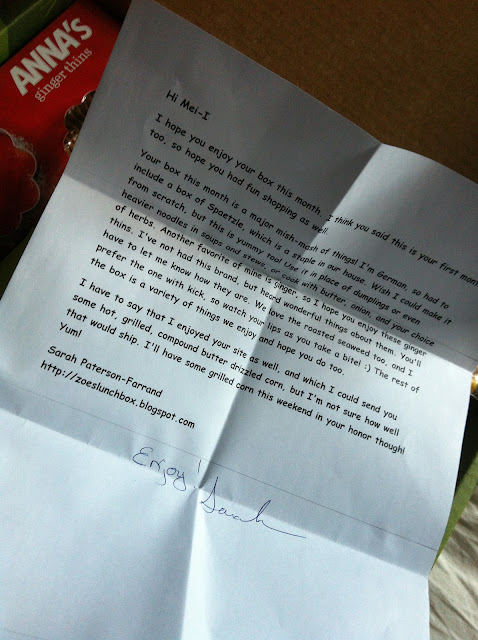 ANNA's
ginger thins
Hi Mei-I
I hope you enjoy your box this month. I think you said this is your first mon
too, so hope you had fun shopping as well.
Your box this month is a major mish-mash of things! I'm German, so had to
include a box of Spaetzle, which is a staple in our house. Wish I could make it
from scratch, but this is yummy too! Use it in place of dumplings or even
heavier noodles in soups and stews, or cook with butter, onion, and your choice
of herbs. Another favorite of mine is ginger, so I hope you enjoy these ginger
thins. I've not had this brand, but heard wonderful things about them. You'll
have to let me know how they are. We love the roasted seaweed too, and I
prefer the one with kick, so watch your lips as you take a bite! :) The rest of
the box is a variety of things we enjoy and hope you do too.
I have to say that I enjoyed your site as well, and which I could send you
some hot, grilled, compound butter drizzled corn, but I'm not sure how well
that would ship. I'll have some grilled corn this weekend in your honor though!
Yum!
Sarah Paterson-Farrand
http://zoeslunchbox.blogspot.com
Enjoy! Sarah